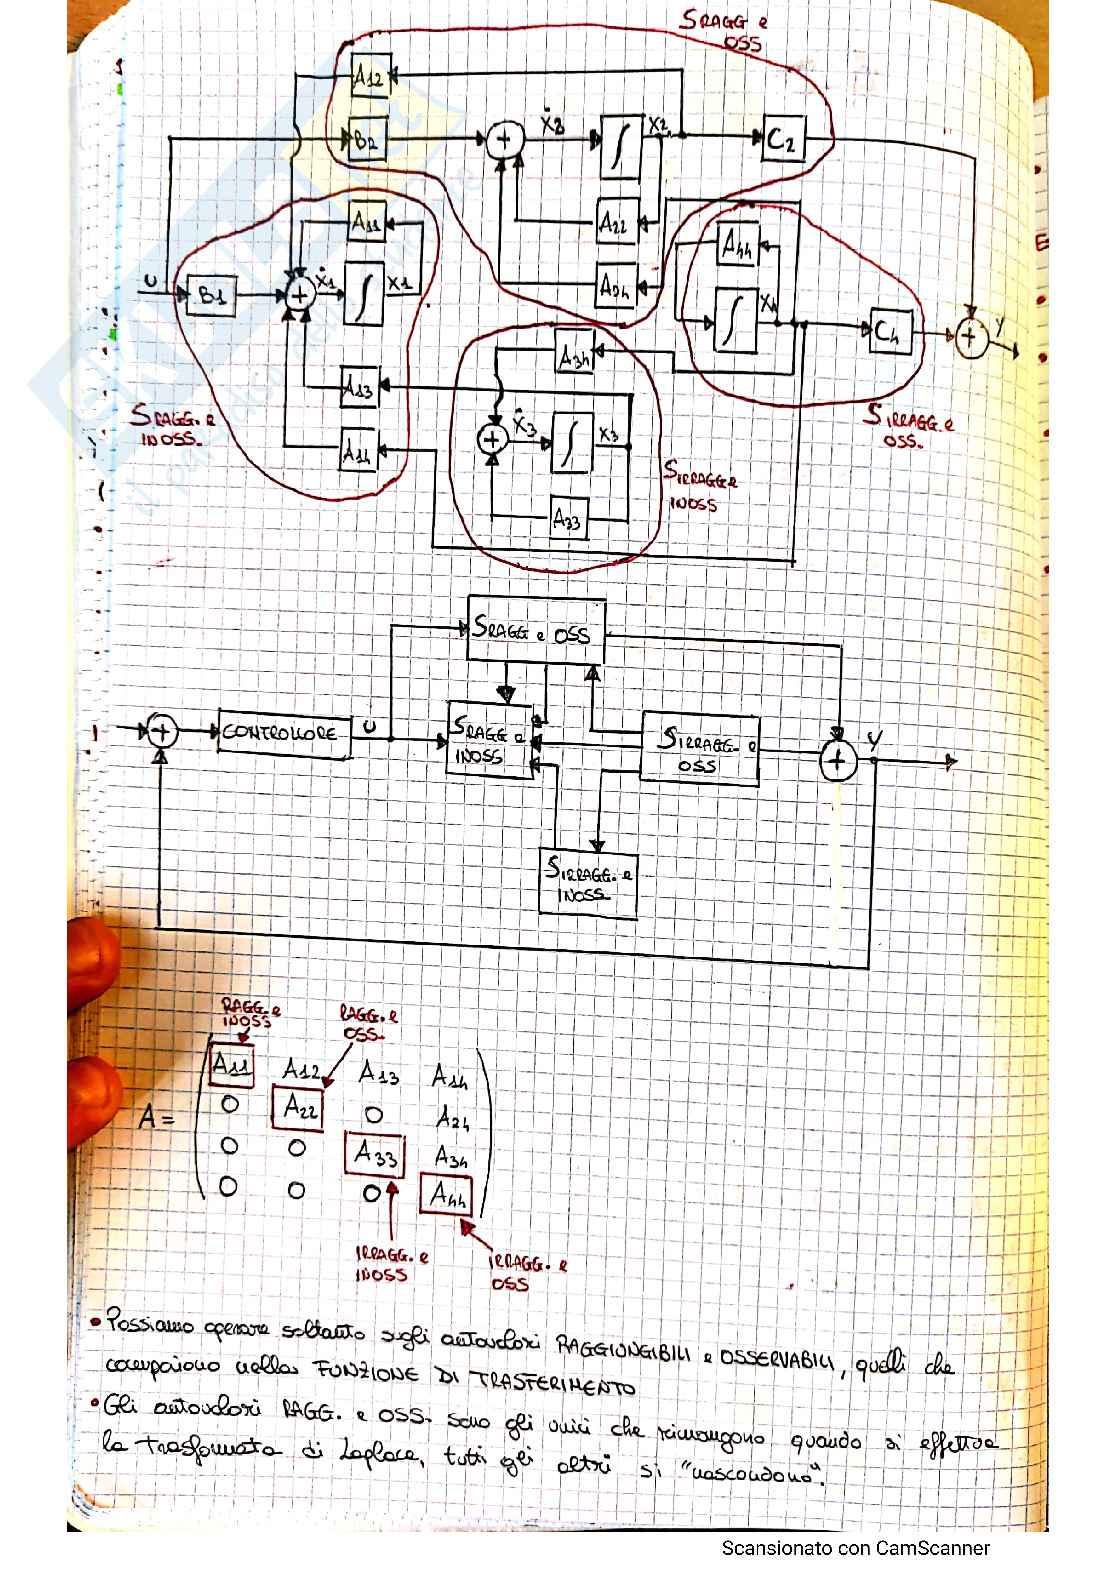 SRAGG e
OSS
A12
B2
+
ẋ2
∫
X2
C2
A22
A24
A11
U
B1
+
ẋ1
∫
X1
A44
∫
X4
C4
+
Y
A34
A13
SRAGG. e
INOSS.
+
ẋ3
∫
X3
A14
A33
SIRRAGG. e
OSS.
SIRRAGG e
INOSS
SRAGG e OSS
+
CONTROLLORE
U
SRAGG e
INOSS
SIRRAGG. e
OSS
+
Y
SIRRAGG. e
INOSS.
RAGG. e
INOSS
RAGG. e
OSS.
A11 A12 A13 A14
A =
0 A22 0 A24
0 0 A33 A34
0 0 0 A44
IRRAGG. e
INOSS
IRRAGG. e
OSS
• Possiamo operare soltanto sugli autovalori RAGGIUNGIBILI e OSSERVABILI, quelli che
compaiono nella FUNZIONE DI TRASFERIMENTO
• Gli autovalori RAGG. e OSS. sono gli unici che rimangono quando si effettua
la trasformata di Laplace, tutti gli altri si "nascondono".
Scansionato con CamScanner